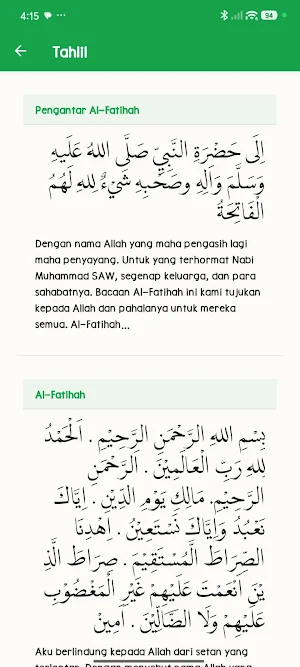 4:15
94
Tahlil
Pengantar Al-Fatihah
اِلَى حَضْرَةِ النَّبِيِّ صَلَّى اللهُ عَلَيهِ
وَسَلَّمَ وَاَلِهِ وصَحْبِهِ شَيْءٌ لِلهِ لَهُمُ
الْفَاتِحَةُ
Dengan nama Allah yang maha pengasih lagi
maha penyayang. Untuk yang terhormat Nabi
Muhammad SAW, segenap keluarga, dan para
sahabatnya. Bacaan Al-Fatihah ini kami tujukan
kepada Allah dan pahalanya untuk mereka
semua. Al-Fatihah...
Al-Fatihah
بِسْمِ اللهِ الرَّحْمَنِ الرَّحِيْمِ . اَلْحَمْدُ
لِلهِ رَبِّ الْعَالَمِيْنَ . الرَّحْمَنِ
الرَّحِيْمِ. مَالِكِ يَوْمِ الدِّيْنِ . اِيَّاكَ
نَعْبُدُ وَاِيَّاكَ نَسْتَعِيْنُ . اِهْدِنَا
الصِّرَاطَ الْمُسْتَقِيْمَ . صِرَاطَ الَّذِ
يْنَ اَنْعَمْتَ عَلَيْهِمْ غَيْرِ الْمَغْضُوْبِ
عَلَيْهِمْ وَلَا الضَّالِّيْنَ . اَمِيْنَ
Aku berlindung kepada Allah dari setan yang